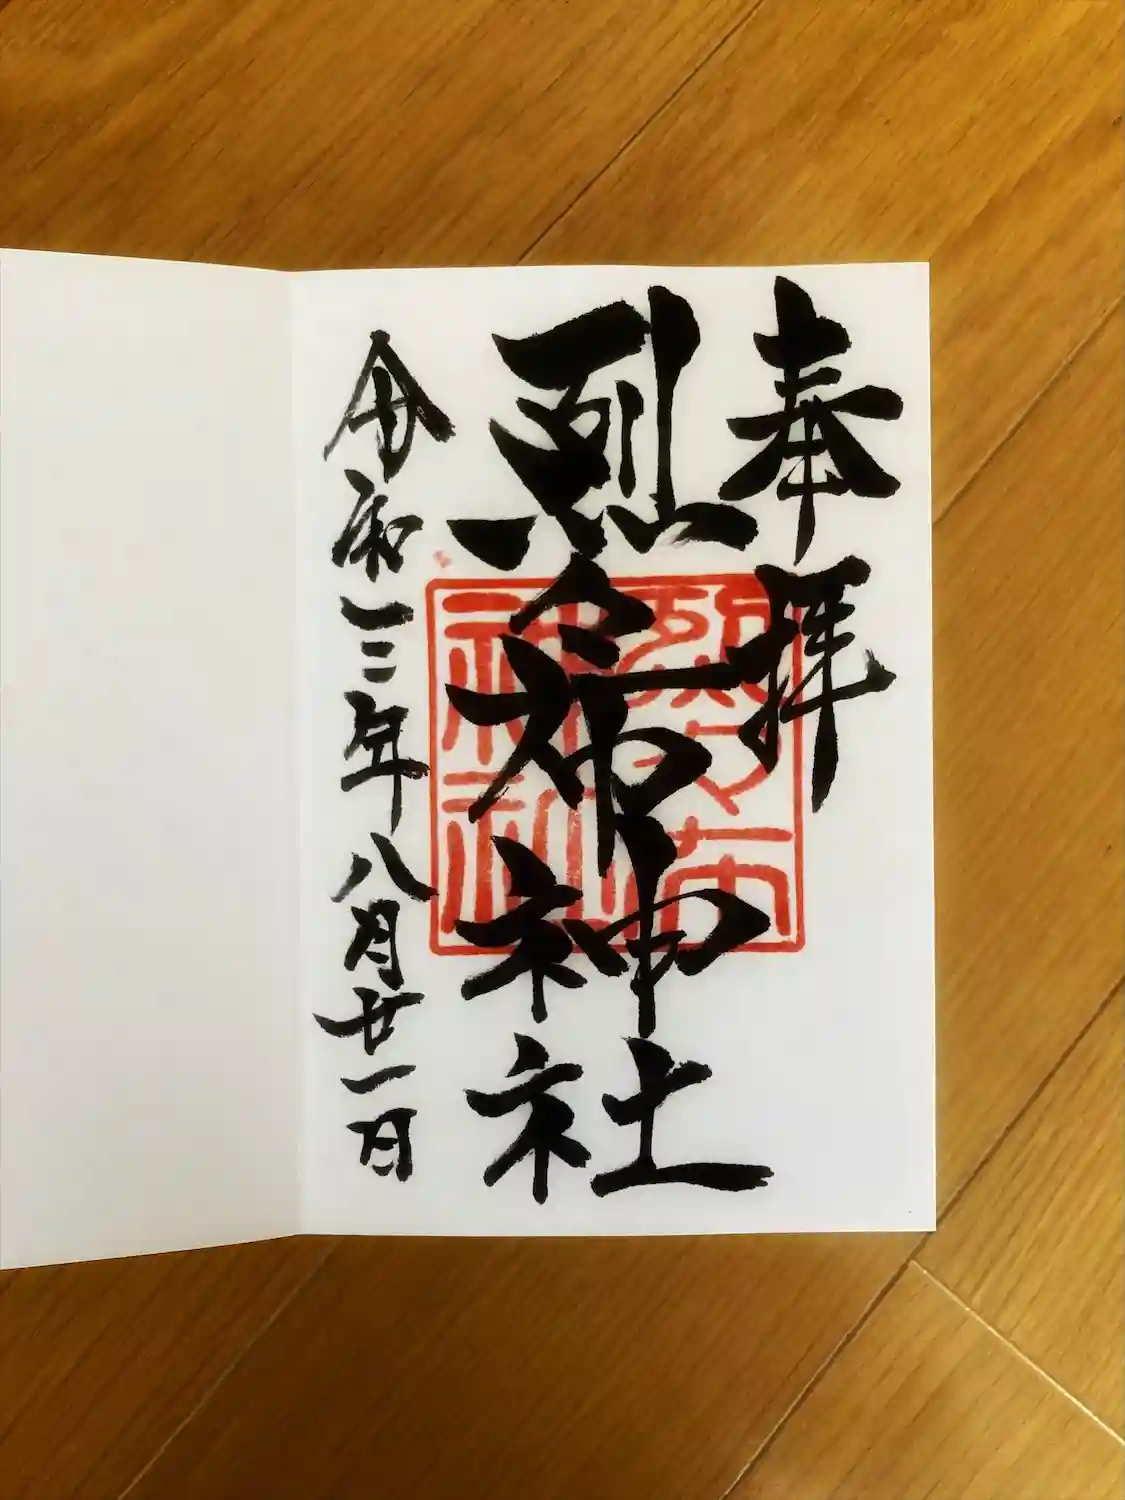 奉拝
烈々布神社
令和三年八月廿一日
烈々布
神社